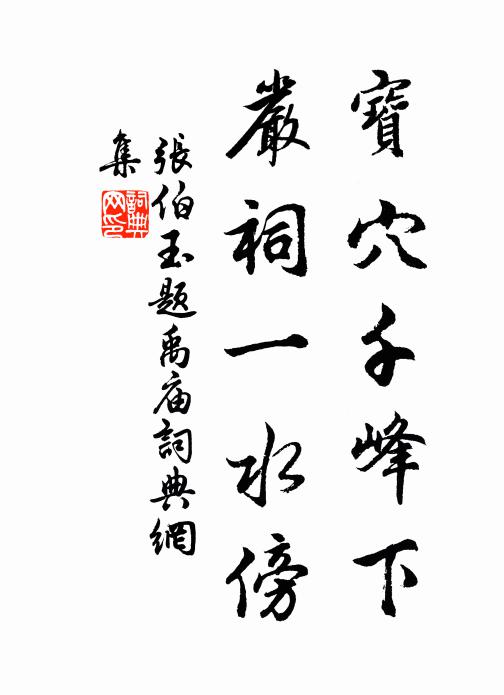 寶穴千峰下
嚴祠一水傍
張伯玉題禹庙詞典網
集
詞典
网印